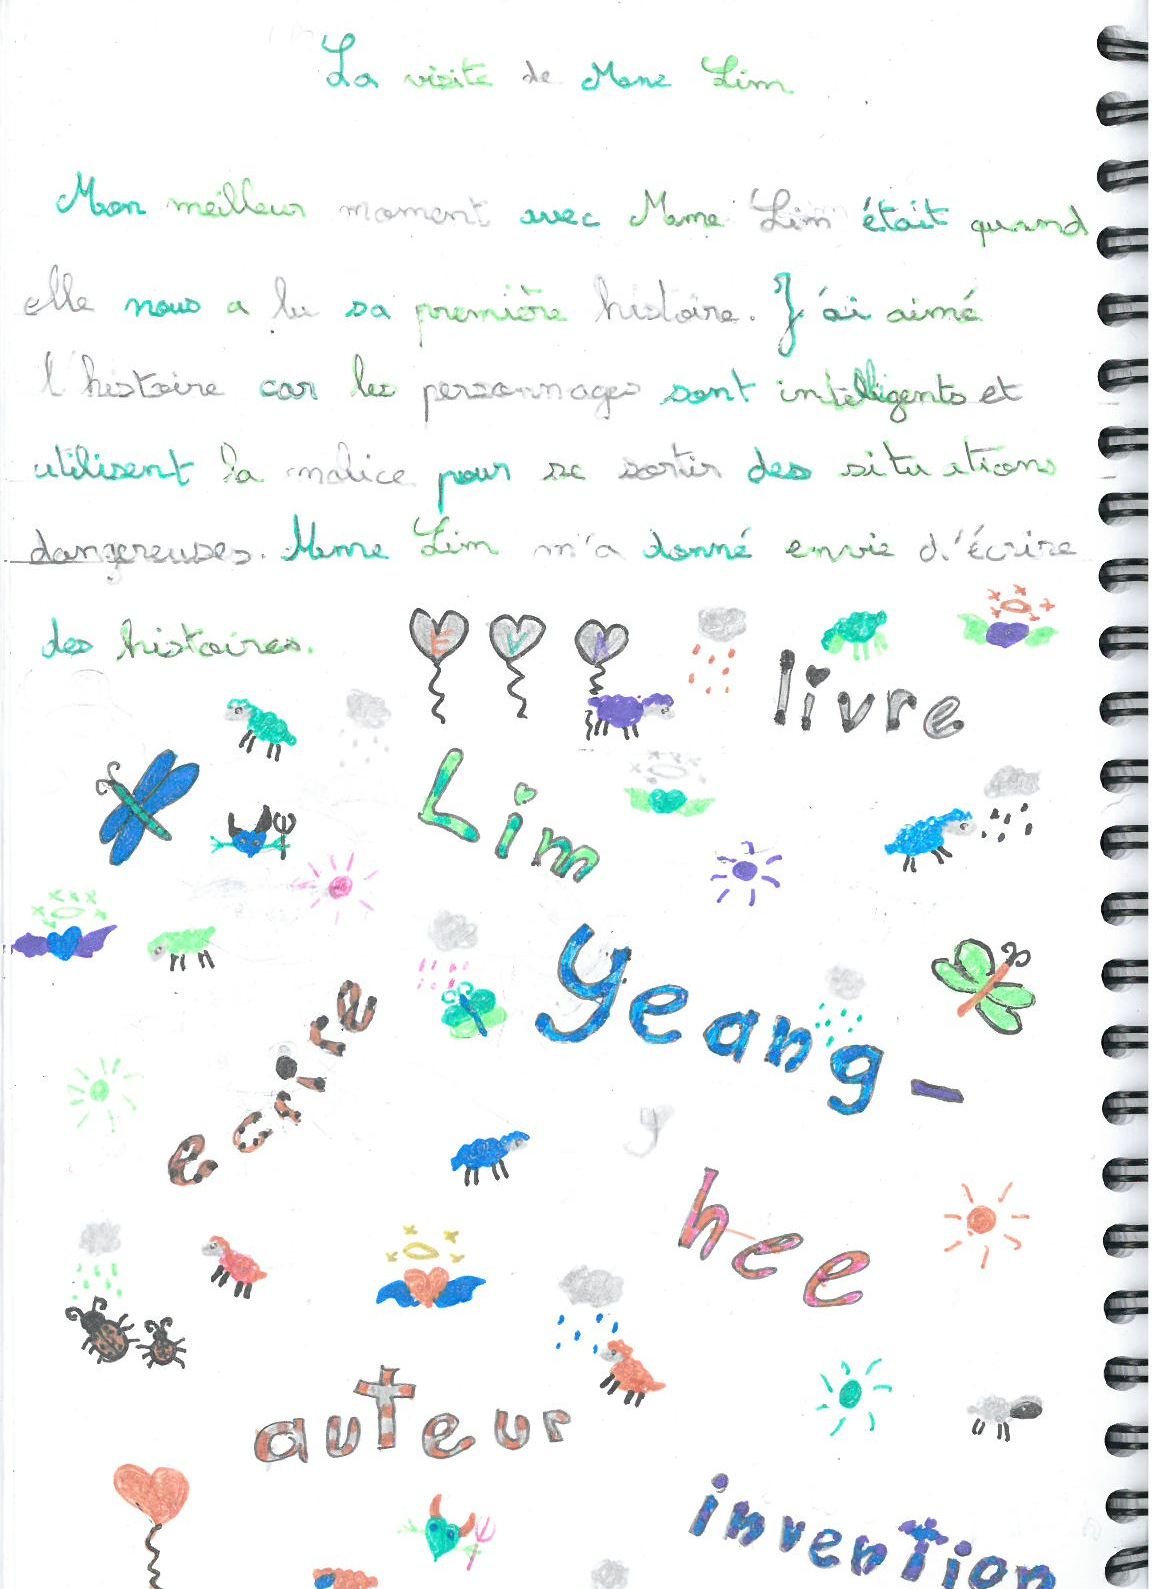 La visite de Mme Lim
Mon meilleur moment avec Mme Lim était quand
elle nous a lu sa première histoire. J'ai aimé
l'histoire car les personnages sont intelligents et
utilisent la malice pour se sortir des situations
dangereuses. Mme Lim m'a donné envie d'écrire
des histoires.
E V A
livre
Lim
Yeang-
ecrire
y
hee
auteur
invention